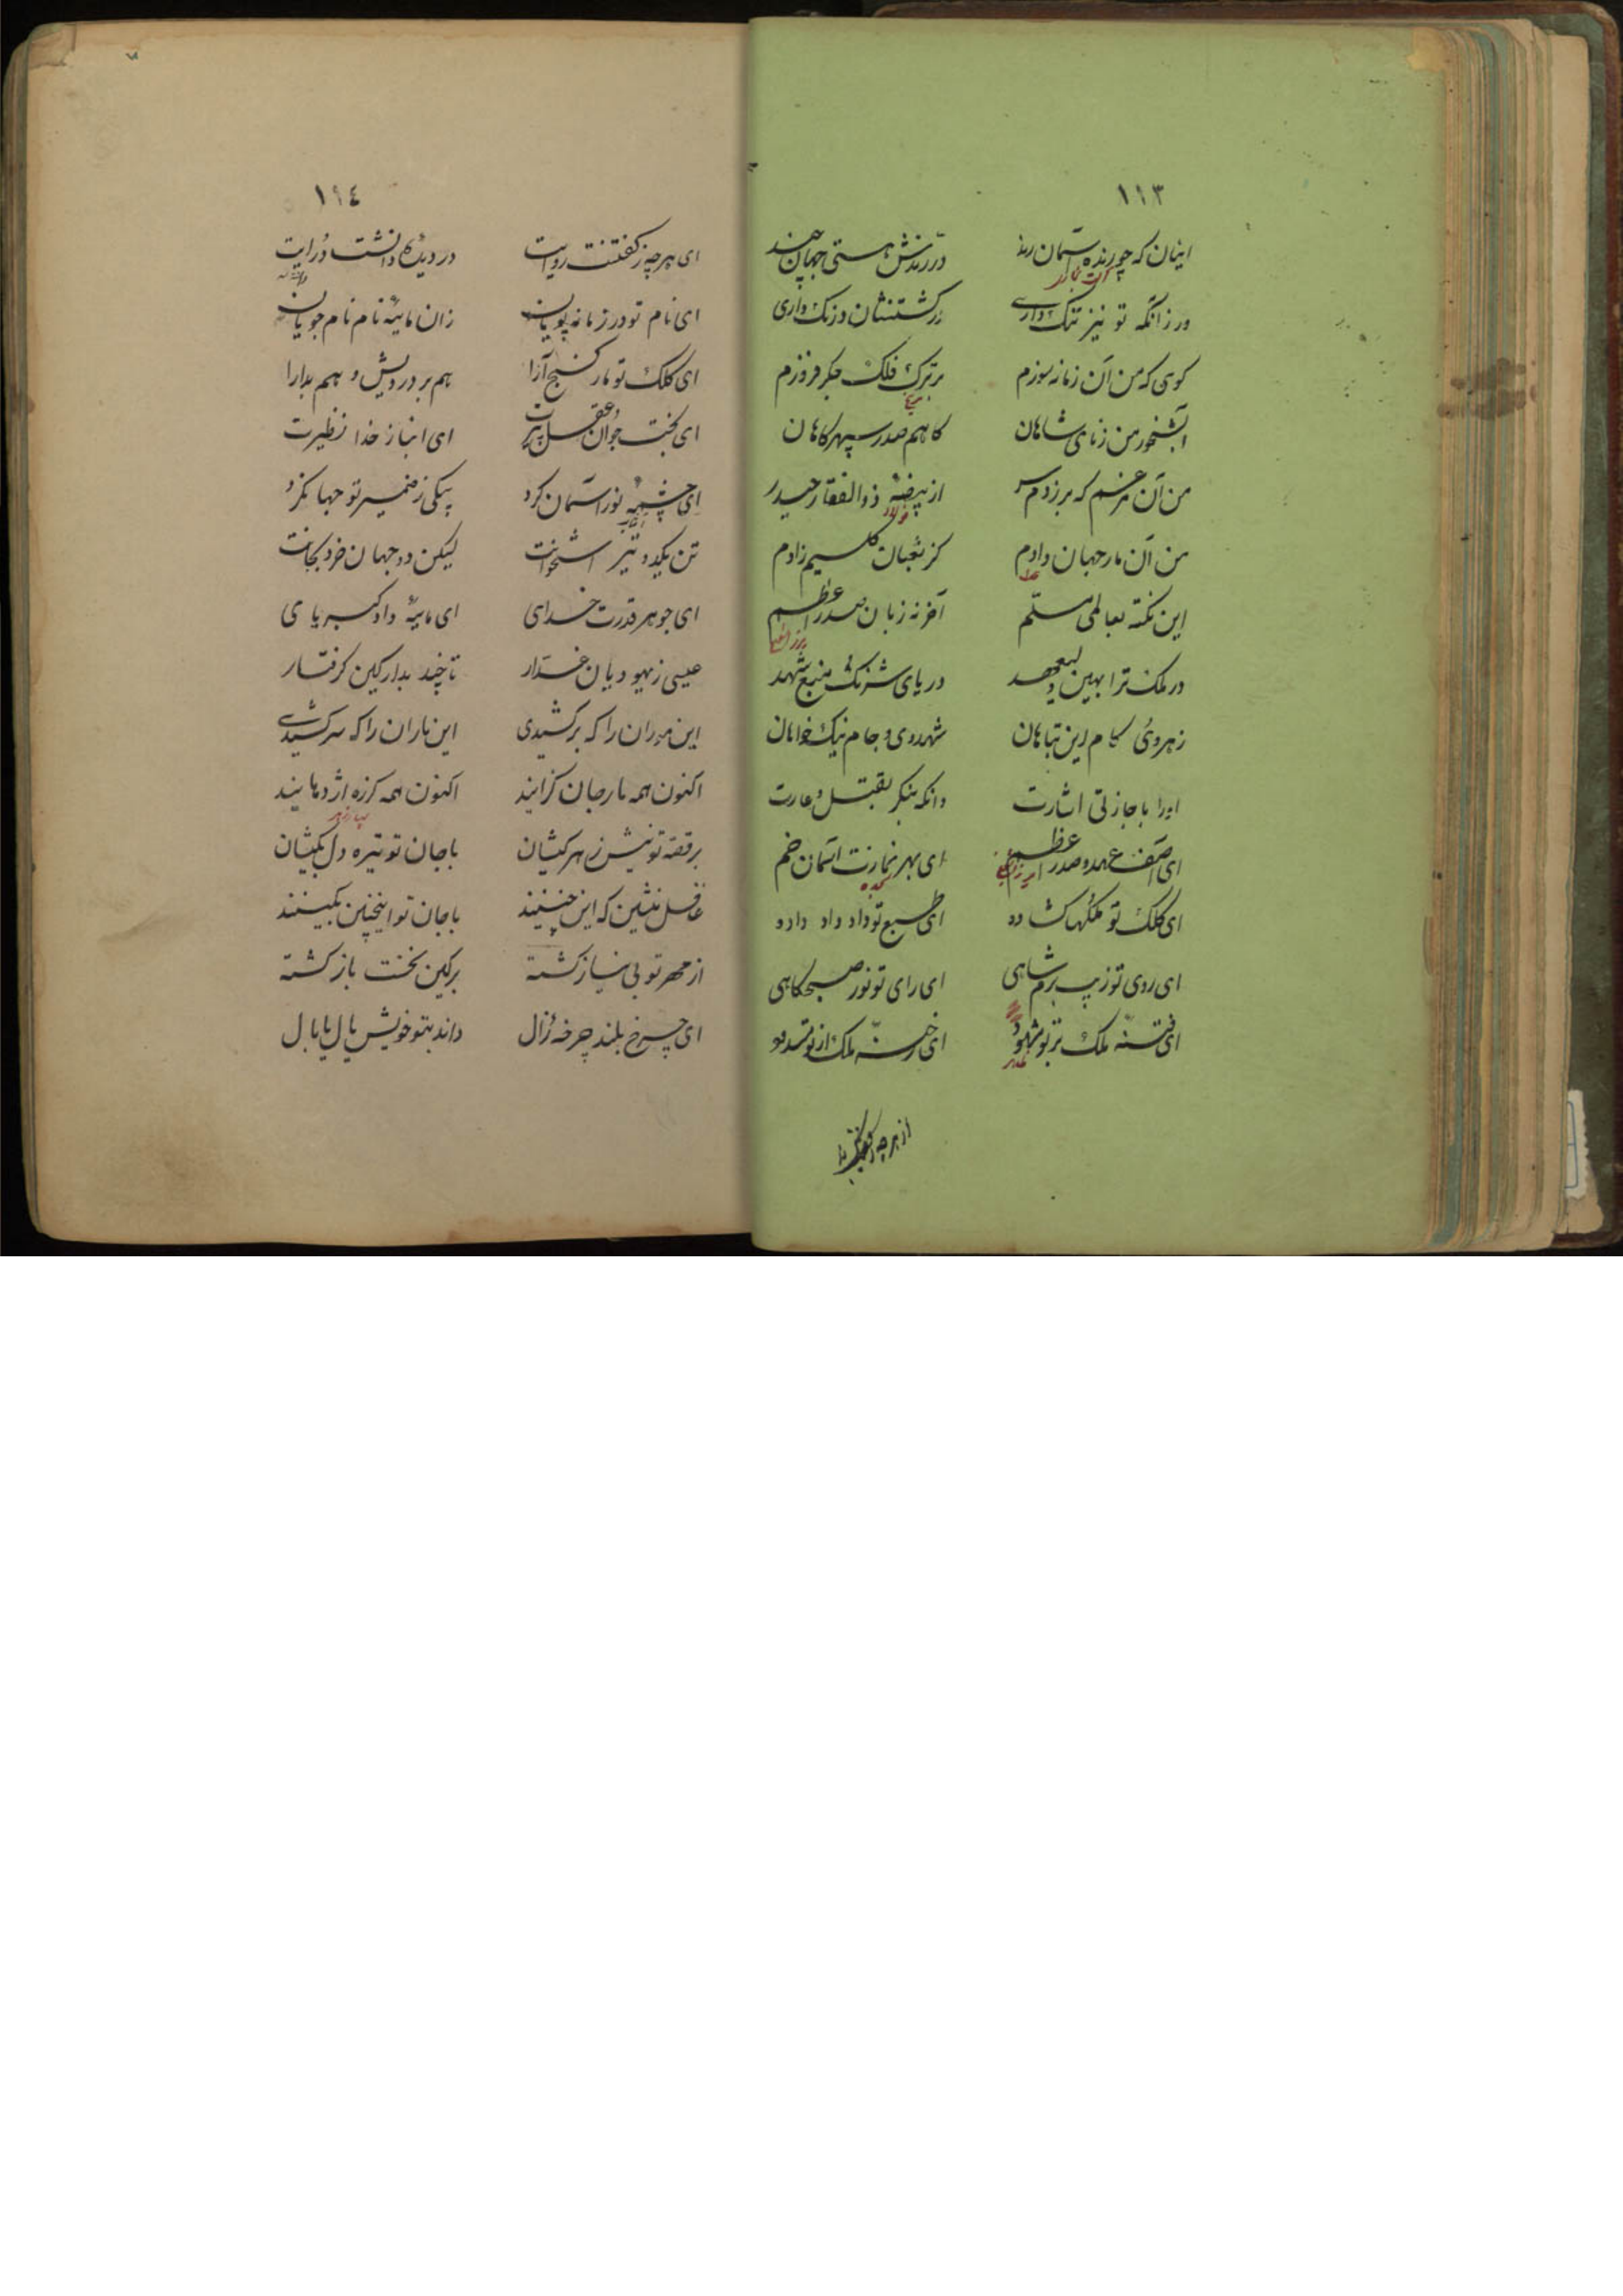 ١١٣
اینان که چو رنده آسمان رند در رندش هستی جهان
ور زانکه تو نیز تنک داری در کشتنشان درنک داری
کوی که من آن زمانه سوزم بر ترک فلک جکر فروزم
آبشخور من ز نای شاهان کاهم صدر سپهرکاهان
من آن که بر زدم سر از بیضهٔ ذوالفقار حیدر
من آن مار جهان دادم کز ثعبان کلیم زادم
این نکته بعالمی مسلّم آخر نه زبان صدر اعظم
در ملک ترا بهین ولیعهد دریای شرنک منبع شهد
زهر وی کام این تباهان شهد وی و جام نیک خواهان
او را باجازتی اشارت وانکه بنکر بقتل و غارت
ای آصف عهد و صدر اعظم ای بهر نمازت آسمان خم
ای کلک تو ملکها کشاده ای طبع تو داد داد داده
ای روی تو زیب بزم شاهی ای رای تو نور صبحکاهی
ای فتنهٔ ملک ای رخنهٔ ملک از تو
از هرچه
١١٤
ای هرچه ز کفتنت روایت در دیدهٔ دانشت درایت
ای نام تو در زمانه پویان زان مایهٔ نام نام جویان
ای کلک تو مار کنج آرا هم بر درویش و هم بدارا
ای بخت جوان و عقل پیرت ای انباز خدا نظیرت
ای چشمهٔ نور آسمان کرد پیکی ز ضمیر تو جهانکرد
تن یکدو تیر استخوانت لیکن دو جهان خرد بجانت
ای جوهر قدرت خدای ای مایهٔ داد کبریای
عیسی ز یهودیان غدّار تا چند بدار کین کرفتار
این موران را که برکشیدی این ماران را که سرکشیدی
اکنون همه مار جان کزایند اکنون همه کرزه اژدهایند
بر قصد تو نیش زهر کیشان با جان تو تیره دل کیشان
غافل منشین که این چنینند با جان تو اینچنین بکینند
از مهر تو بی نیاز کشته بر کین نخست باز کشته
ای چرخ بلند چرخهٔ زال داند بتو خویش یال یا بال